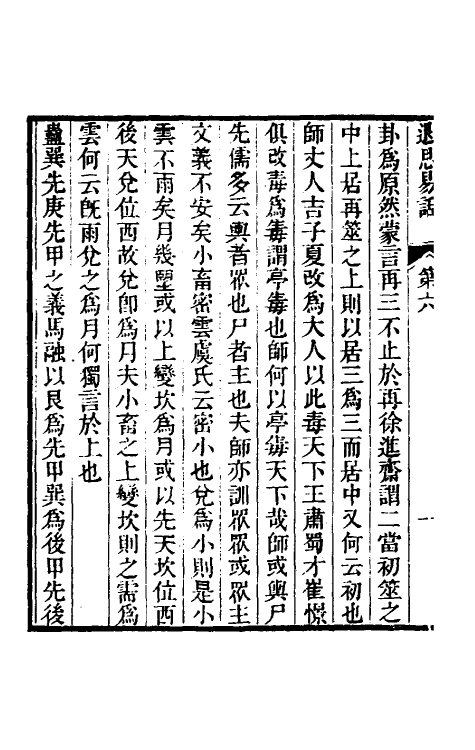 退思易話 第六 一
卦為原然蒙言再三不止於再徐進齋謂二當初筮之
中上居再筮之上則以居三為三而居中又何云初也
師丈人吉子夏改為大人以此毒天下王肅蜀才崔憬
俱改毒為篤謂亭毒也師何以亭毒天下哉師或輿尸
先儒多云輿者眾也尸者主也夫師亦訓眾眾或眾主
文義不安矣小畜密雲虞氏云密小也兌為小則是小
雲不雨矣月幾望或以上變坎為月或以先天坎位西
後天兌位西故兌即為月夫小畜之上變坎則之需為
雲何云既雨兌之為月何獨言於上也
蠱巽先庚先甲之義馬融以艮為先甲巽為後甲先後